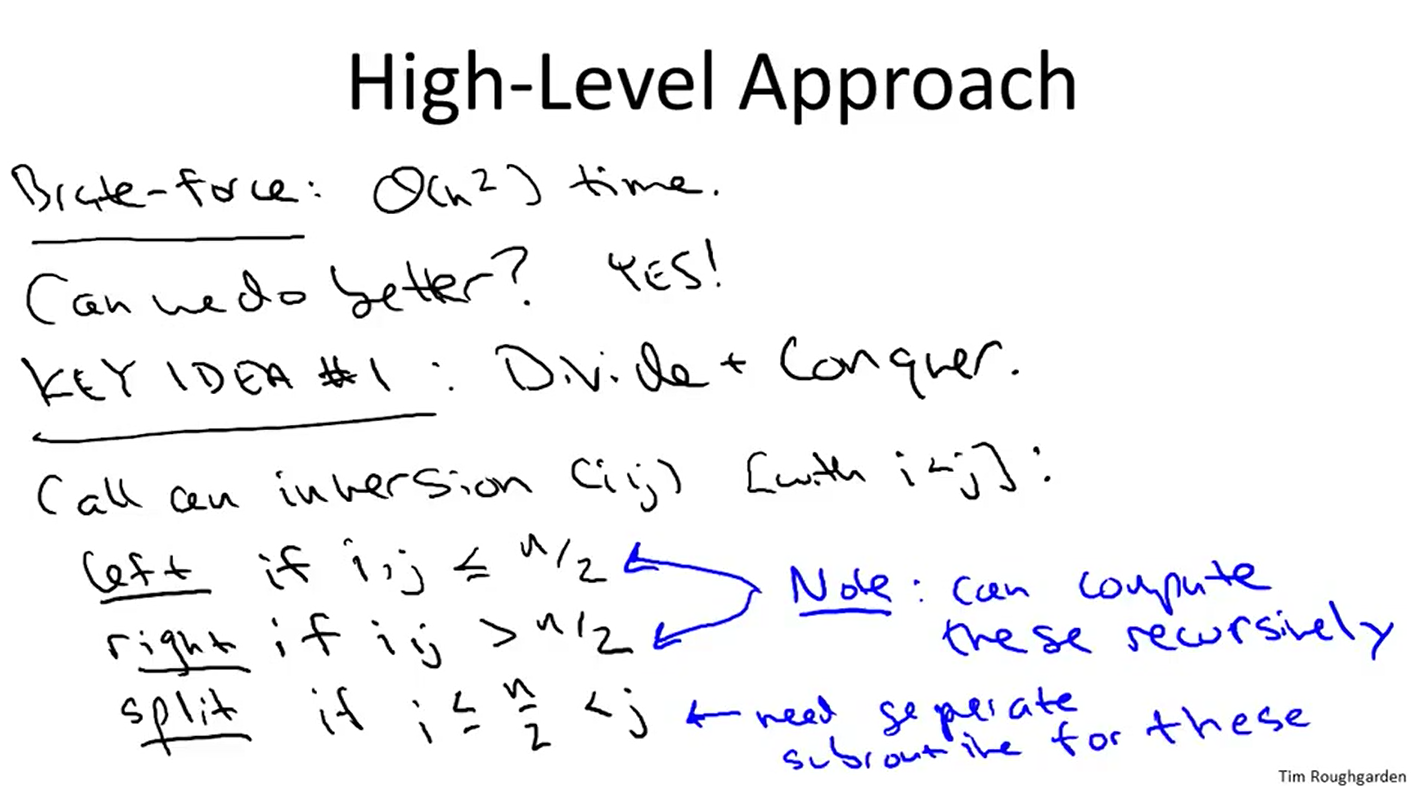 High-Level Approach
Brute-force: Θ(n²) time.
Can we do better? YES!
KEY IDEA #1: Divide + Conquer.
Call an inversion (i,j) [with i<j]:
left if i,j ≤ n/2
right if i,j > n/2
split if i ≤ n/2 < j
Note: can compute
these recursively
← need seperate
subroutine for these
Tim Roughgarden